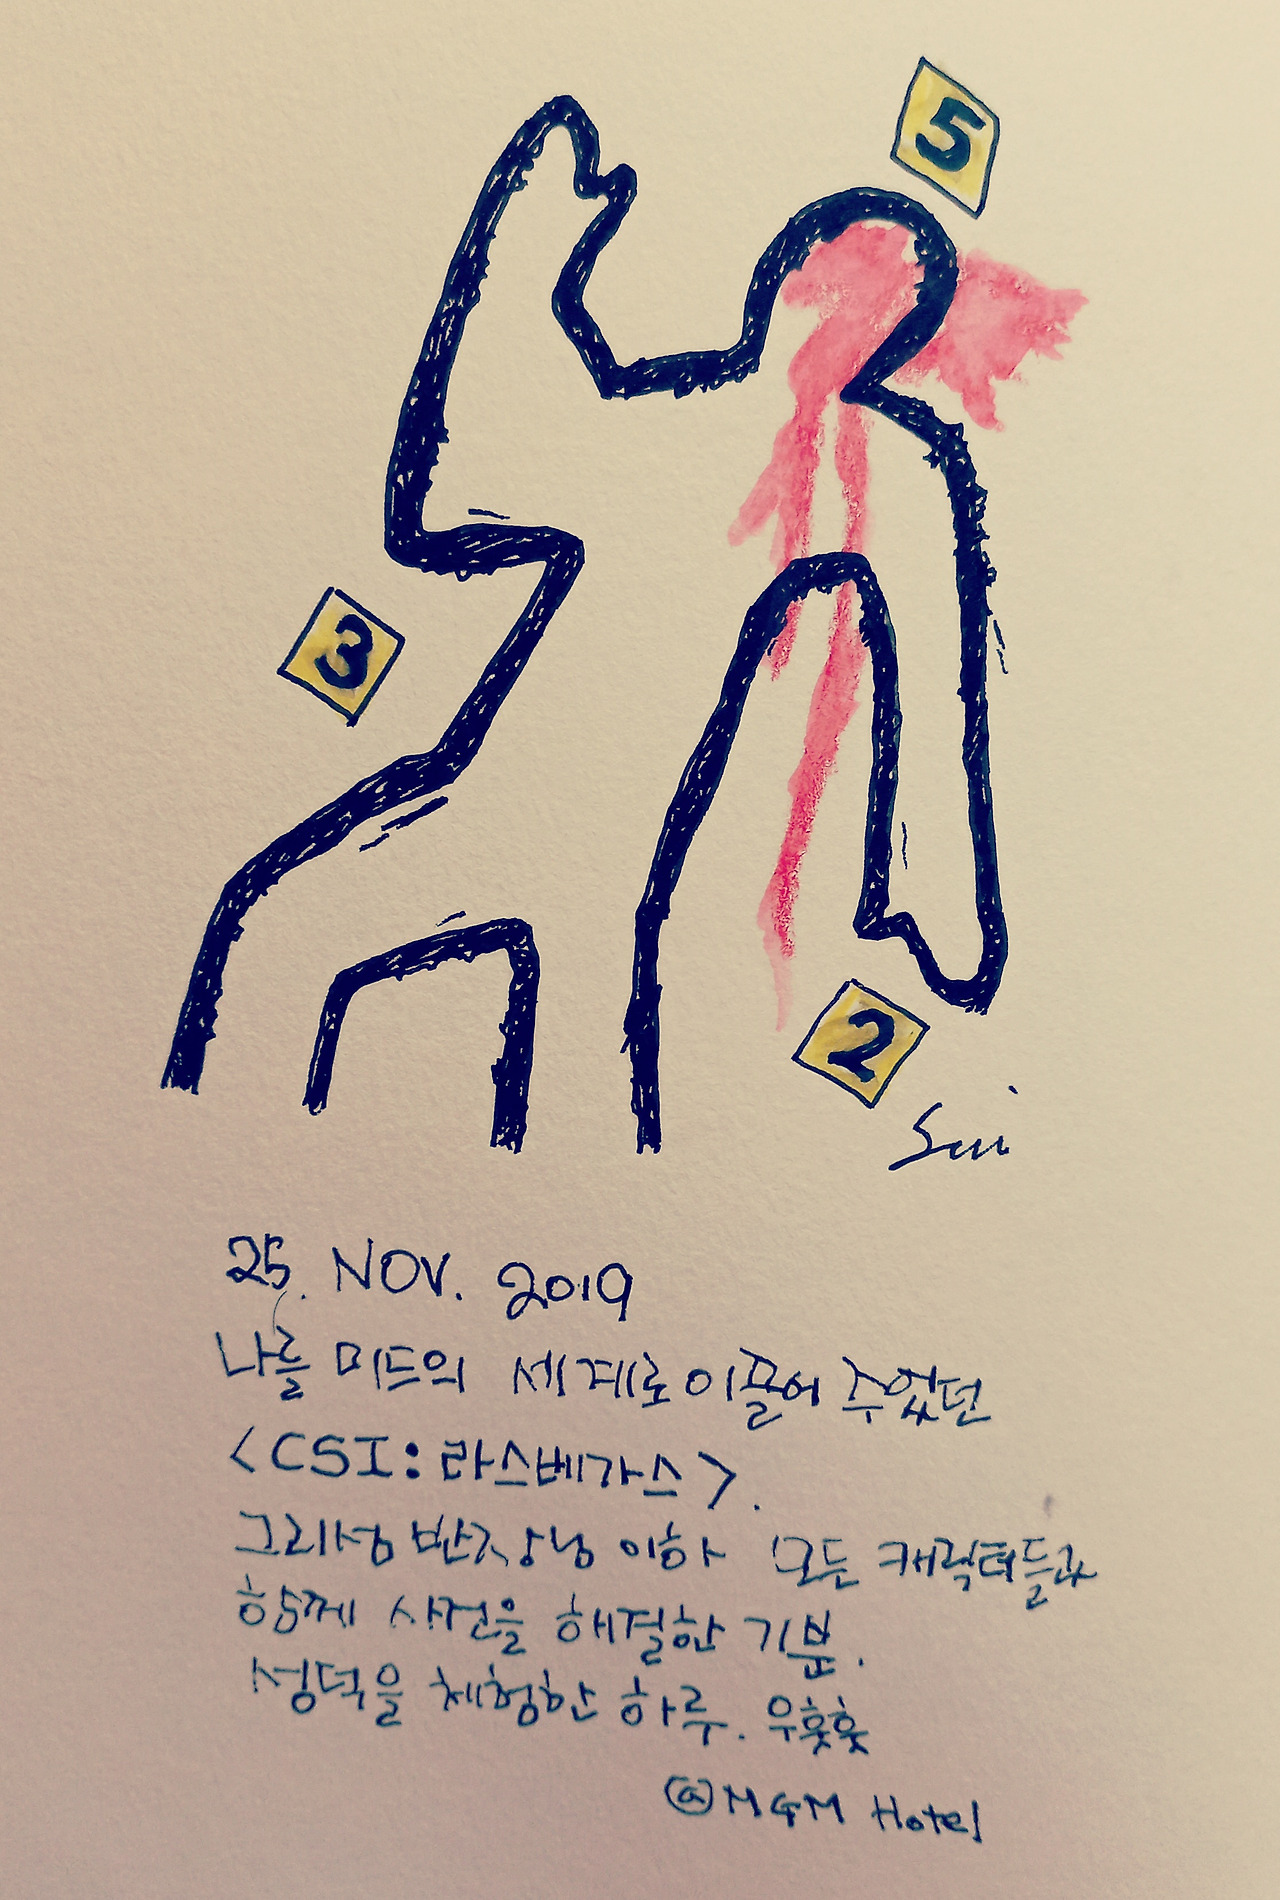 5
3
2
Sui
25. NOV. 2019
나를 미드의 세계로 이끌어 주었던
<CSI: 라스베가스>.
그리섬 반장님 이하 모든 캐릭터들과
함께 사건을 해결한 기분.
성덕을 체험한 하루. 우훗훗
@MGM Hotel